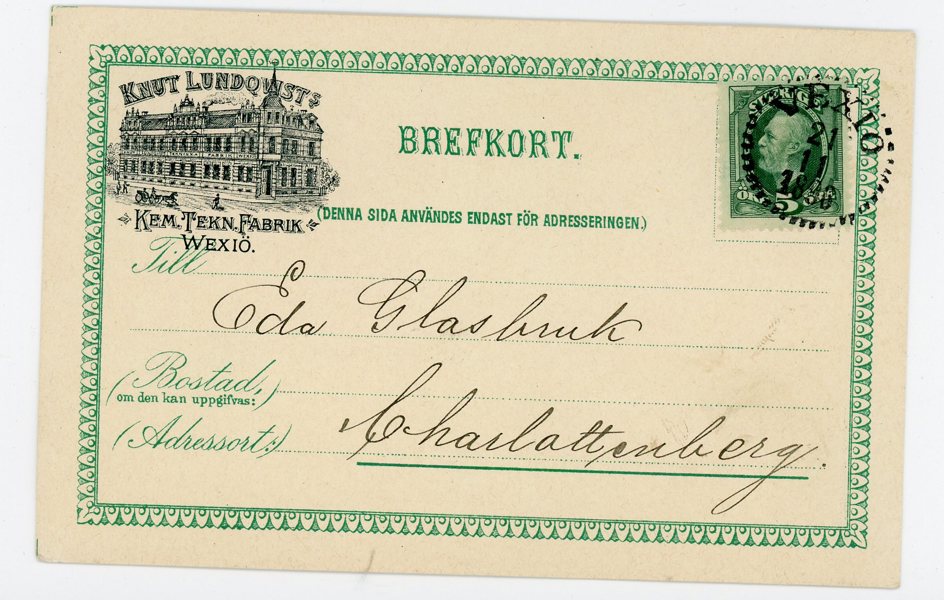 KNUT LUNDQWISTS
KEM. TEKN. FABRIK
WEXIÖ.
BREFKORT.
(DENNA SIDA ANVÄNDES ENDAST FÖR ADRESSERINGEN.)
VEXIÖ
21
1
5
Till
Eda Glasbruk
(Bostad,)
om den kan uppgifvas:
Charlottenberg.
(Adressort:)